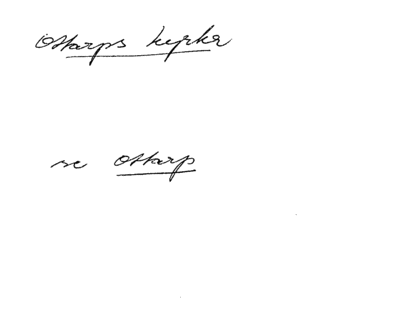 Ottarps kyrka
se Ottarp